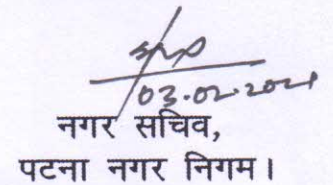 03.02.2021
नगर सचिव,
पटना नगर निगम।